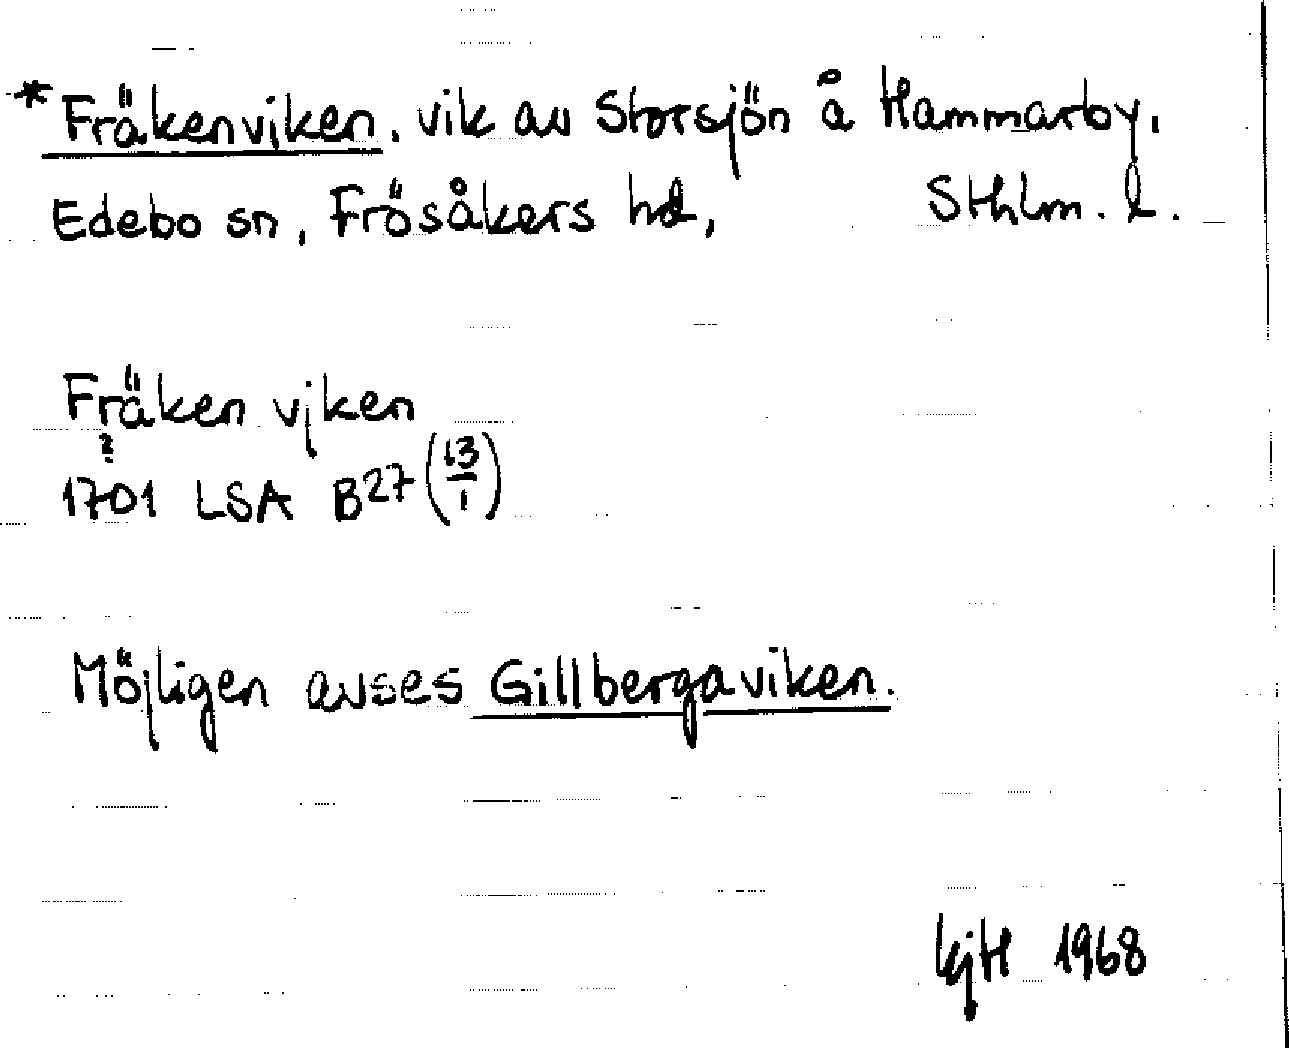 *Fräkenviken, vik av Storsjön å Hammarby,
Edebo sn, Frösåkers hd, Sthlm. l.
Fräken vjken
?
1701 LSA B27 (13/1)
Möjligen avses Gillbergaviken.
KjH 1968